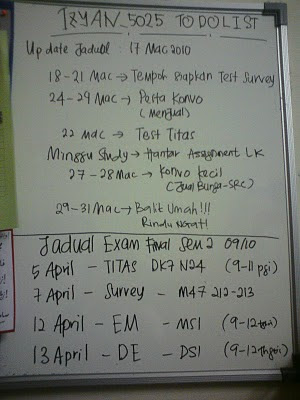 IZYAN_5025 TO DO LIST
Update Jadual : 17 Mac 2010
18-21 Mac → Tempoh Siapkan Test Survey
24-29 Mac → Pesta Konvo
(Menjual)
22 Mac → Test Titas
Minggu Study → Hantar Assignment LK
27-28 Mac → Konvo Kecil
(Jual Bunga-SRC)
29-31 Mac → Balik Umah!!!
Rindu
Jadual Exam Final Sem 2 09/10
5 April - TITAS DK7 N24 (9-11 pgi)
7 April - Survey - M47 212-213
12 April - EM - MS1 (9-12
13 April - DE - DS1 (9-12